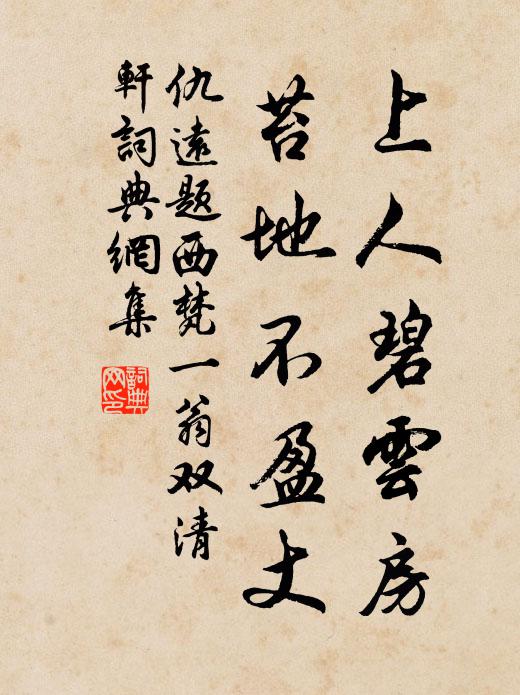 上人碧雲房
苔地不盈丈
仇遠題西梵一翁双清
軒詞典網集
詞典
网印